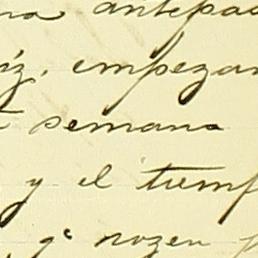 na antepa
íz. empezar
semana
y el tiemp
qe rozen p